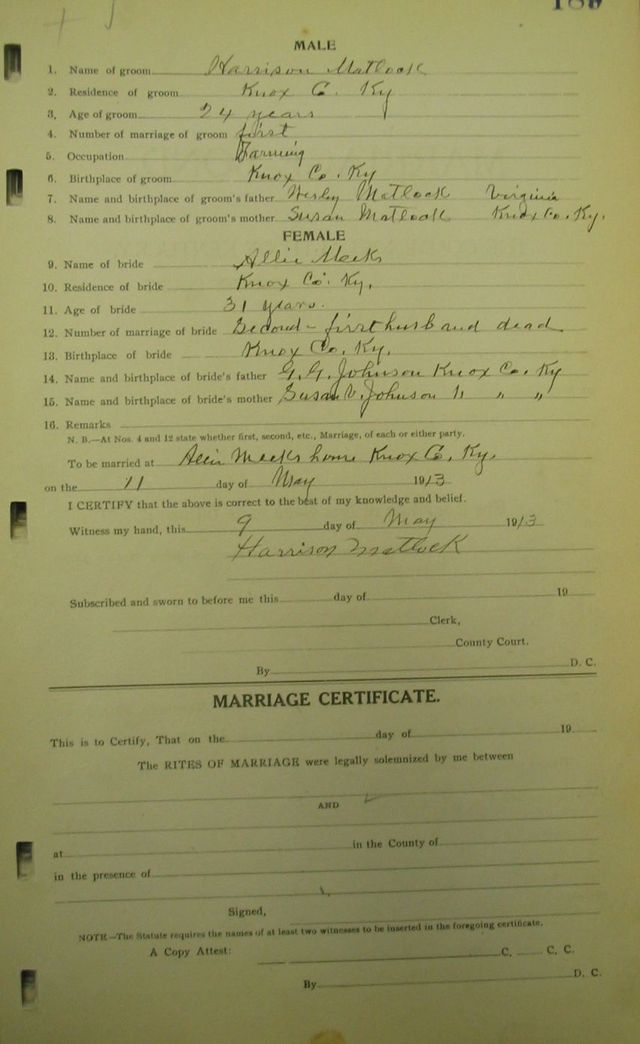 189
MALE
1. Name of groom Harrison Matlock
2. Residence of groom Knox Co. Ky
3. Age of groom 24 years
4. Number of marriage of groom first
5. Occupation Farming
6. Birthplace of groom Knox Co. Ky
7. Name and birthplace of groom's father Wesly Matlock Virginia
8. Name and birthplace of groom's mother Susan Matlock Knox Co. Ky.
FEMALE
9. Name of bride Allie Meeks
10. Residence of bride Knox Co. Ky.
11. Age of bride 31 years.
12. Number of marriage of bride Second - first husband dead
13. Birthplace of bride Knox Co. Ky.
14. Name and birthplace of bride's father G. G. Johnson Knox Co. Ky
15. Name and birthplace of bride's mother Susan V. Johnson " " "
16. Remarks
N. B.—At Nos. 4 and 12 state whether first, second, etc., Marriage, of each or either party.
To be married at Allie Meeks home Knox Co. Ky.
on the 11 day of May 1913
I CERTIFY that the above is correct to the best of my knowledge and belief.
Witness my hand, this 9 day of May 1913
Harrison Matlock
Subscribed and sworn to before me this day of 19
Clerk,
County Court.
By D. C.
MARRIAGE CERTIFICATE.
This is to Certify, That on the day of 19
The RITES OF MARRIAGE were legally solemnized by me between
AND
at in the County of
in the presence of
Signed,
NOTE—The Statute requires the names of at least two witnesses to be inserted in the foregoing certificate.
A Copy Attest: C. C. C.
By D. C.